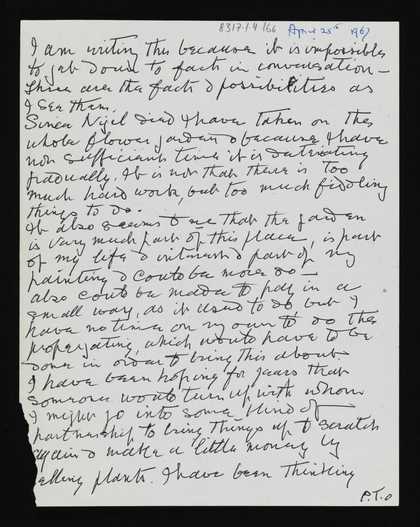 8317.1.4/66
April 25th 1967
I am writing this because it is impossible
to get down to facts in conversation –
These are the facts & possibilities as
I see them.
Since Nigel died I have taken on the
whole flower garden & because I have
not sufficient time it is deteriorating
gradually, It is not that there is too
much hard work, but too much fiddling
things to do.
It also seems to me that the garden
is very much part of this place, is part
of my life & interest & part of my
painting & could be more so –
also could be made to pay in a
small way, as it used to do but I
have no time on my own to do the
propagating, which would have to be
done in order to bring this about
I have been hoping for years that
someone would turn up with whom
I might go into some kind of
partnership to bring things up to scratch
again & make a little money by
selling plants. I have been thinking
P.T.O